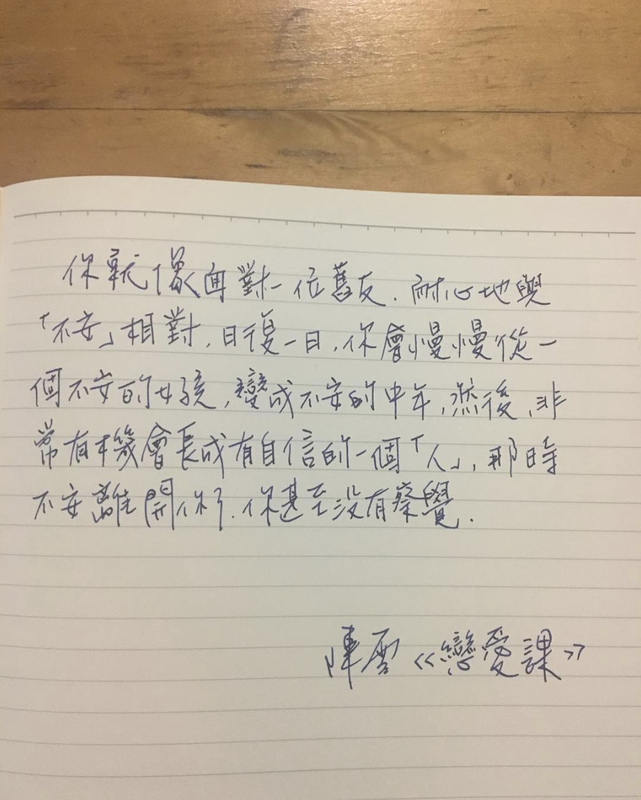 你就像面對一位舊友，耐心地與
「不安」相對，日復一日，你會慢慢從一
個不安的女孩，變成不安的中年，然後，非
常有機會長成有自信的一個「人」，那時
不安離開你了，你甚至没有察覺．
陳雪《戀愛課》